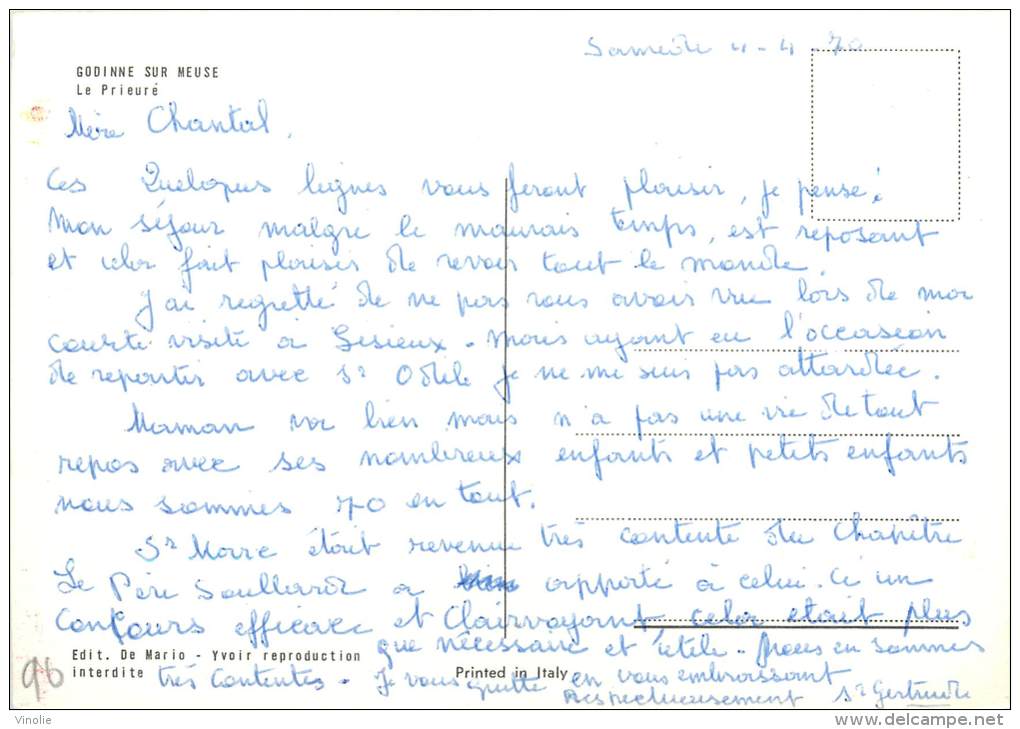 Samedi 4-4-70
GODINNE SUR MEUSE
Le Prieuré
Mère Chantal,
Ces Quelques lignes vous feront plaisir, je pense!
Mon séjour malgre le mauvais temps, est reposant
et cela fait plaisir de revoir tout le monde.
J'ai regretté de ne pas vous avoir vue lors de ma
courte visite à Lisieux. Mais ayant eu l'occasion
de repartir avec Sr Odile je ne me suis pas attardée.
Maman va bien mais n'a pas une vie de tout
repos avec ses nombreux enfants et petits enfants
nous sommes 70 en tout.
Sr Marie était revenue très contente du Chapître
Le Père Soullard a apporté à celui-ci un
concours efficace et Clairvoyant, cela etait plus
que nécessaire et utile. Nous en sommes
très contentes. Je vous quitte en vous embrassant
Respectueusement Sr Gertrude
Edit. De Mario - Yvoir reproduction
interdite
Printed in Italy
96
Vinolie
www.delcampe.net